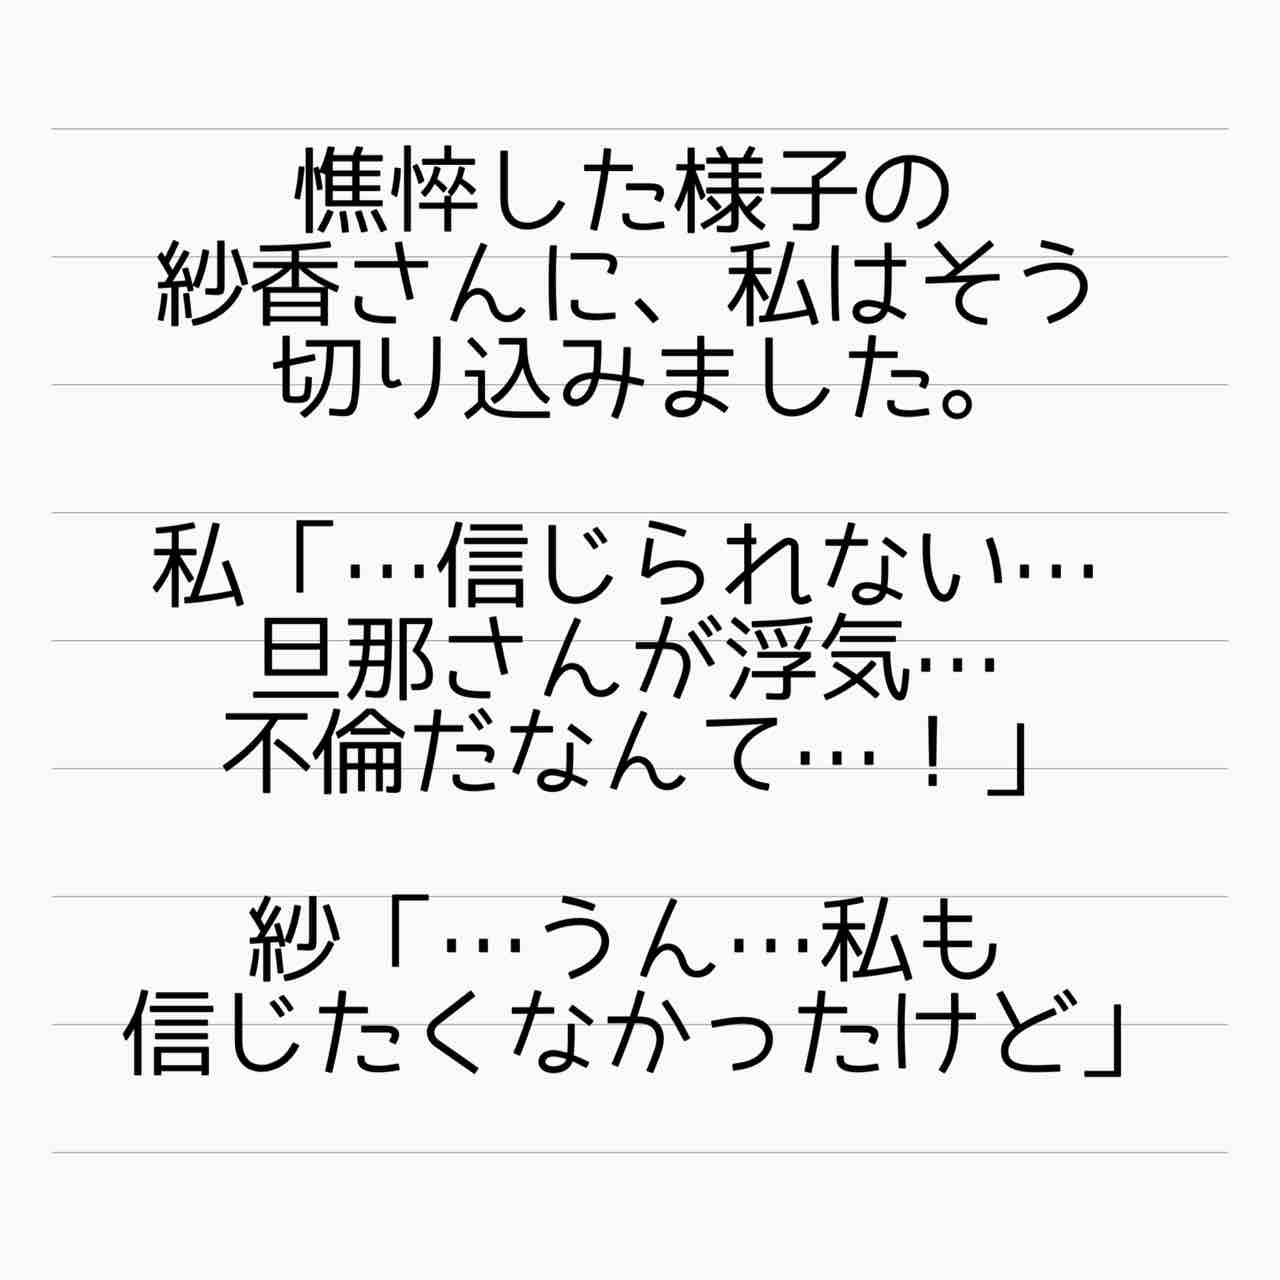 憔悴した様子の
紗香さんに、私はそう
切り込みました。
私「…信じられない…
旦那さんが浮気…
不倫だなんて…！」
紗「…うん…私も
信じたくなかったけど」